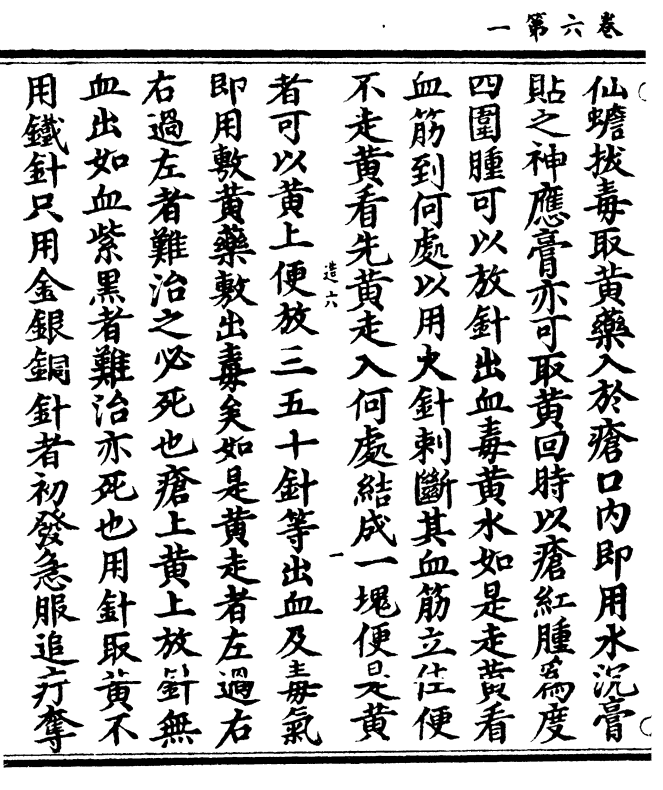 卷六第一
仙蟾拔毒取黄藥入於瘡口内即用水沉膏
貼之神應膏亦可取黄回時以瘡紅腫爲度
四圍腫可以放針出血毒黄水如是走黄看
血筋到何處以用火針刺斷其血筋立住便
不走黄看先黄走入何處結成一塊便是黄
造六
一
者可以黄上便放三五十針等出血及毒氣
即用敷黄藥敷出毒矣如是黄走者左過右
右過左者難治之必死也瘡上黄上放針無
血出如血紫黑者難治亦死也用針取黄不
用鐵針只用金銀銅針者初發急服追疔奪